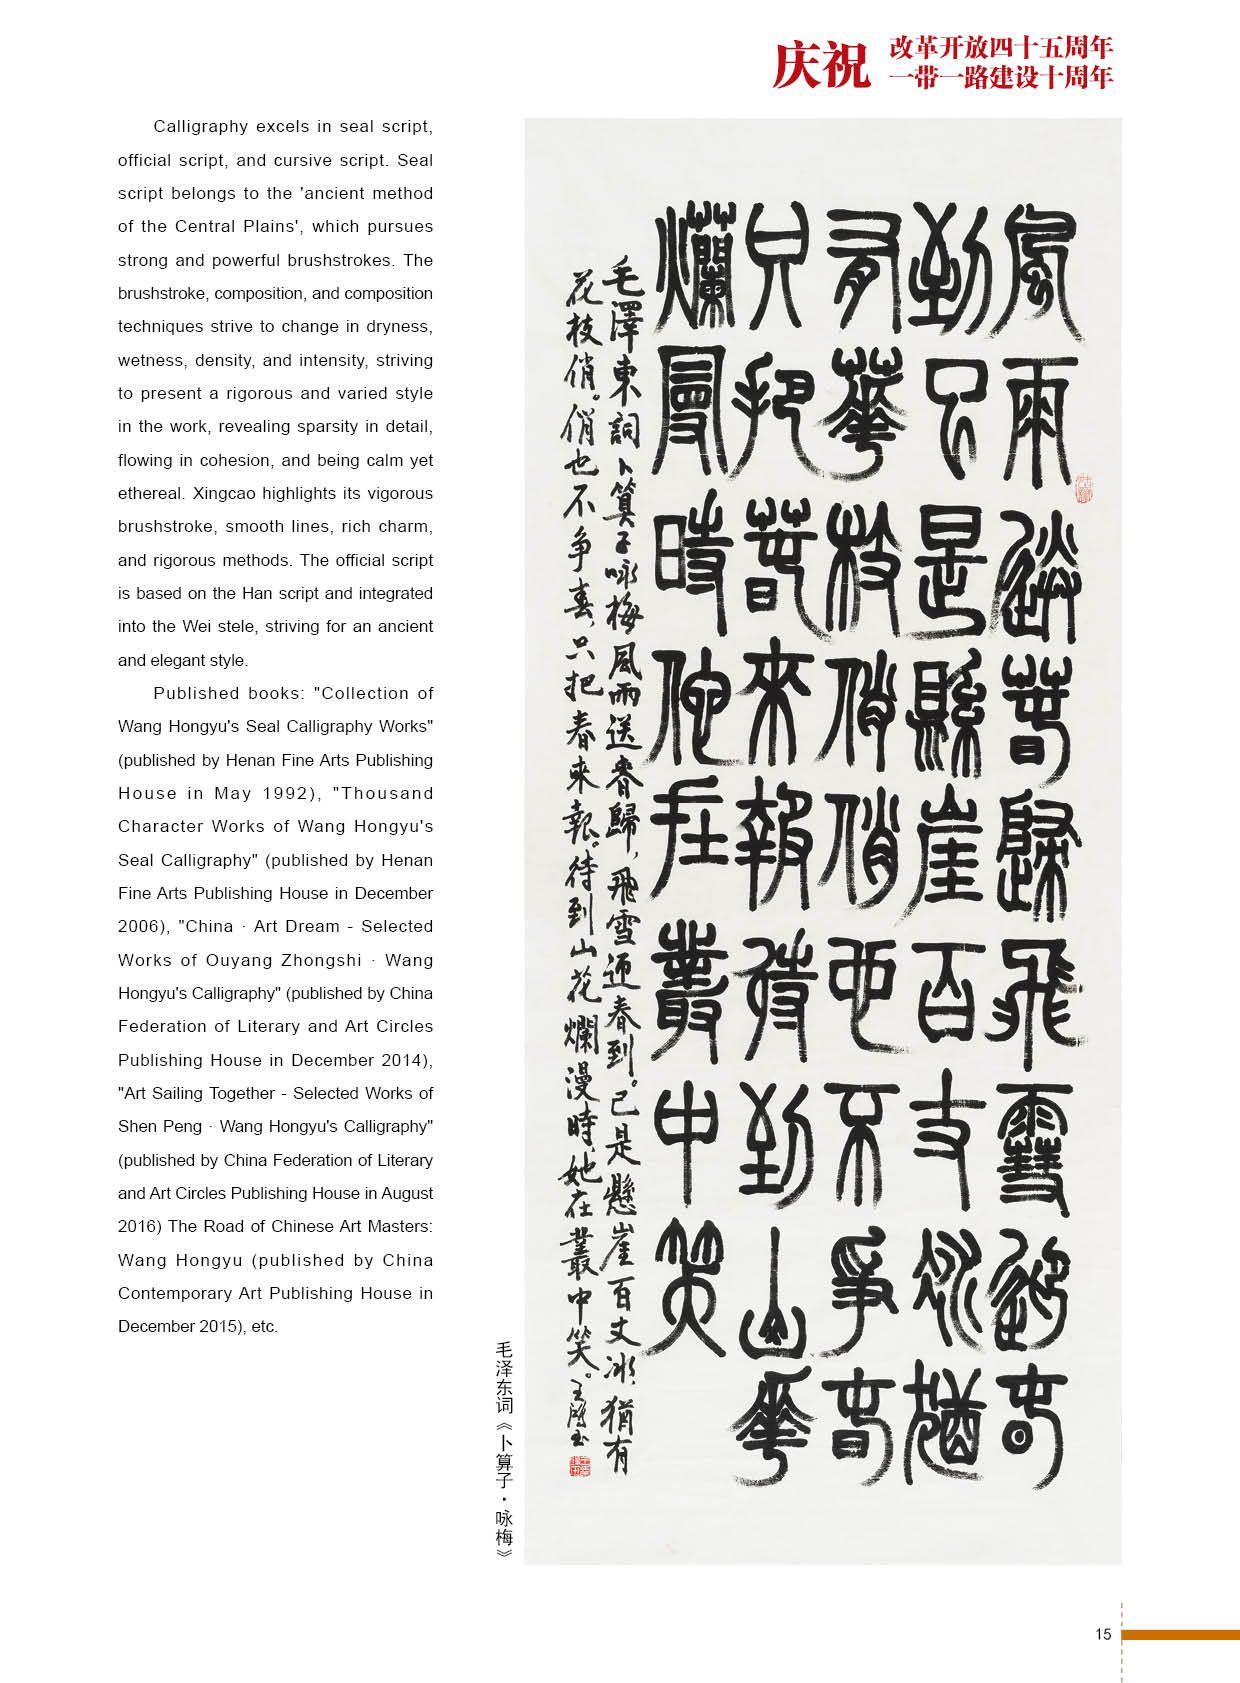 庆祝
改革开放四十五周年
一带一路建设十周年
Calligraphy excels in seal script,
official script, and cursive script. Seal
script belongs to the 'ancient method
of the Central Plains', which pursues
strong and powerful brushstrokes. The
brushstroke, composition, and composition
techniques strive to change in dryness,
wetness, density, and intensity, striving
to present a rigorous and varied style
in the work, revealing sparsity in detail,
flowing in cohesion, and being calm yet
ethereal. Xingcao highlights its vigorous
brushstroke, smooth lines, rich charm,
and rigorous methods. The official script
is based on the Han script and integrated
into the Wei stele, striving for an ancient
and elegant style.
Published books: "Collection of
Wang Hongyu's Seal Calligraphy Works"
(published by Henan Fine Arts Publishing
House in May 1992), "Thousand
Character Works of Wang Hongyu's
Seal Calligraphy" (published by Henan
Fine Arts Publishing House in December
2006), "China · Art Dream - Selected
Works of Ouyang Zhongshi · Wang
Hongyu's Calligraphy" (published by China
Federation of Literary and Art Circles
Publishing House in December 2014),
"Art Sailing Together - Selected Works of
Shen Peng · Wang Hongyu's Calligraphy"
(published by China Federation of Literary
and Art Circles Publishing House in August
2016) The Road of Chinese Art Masters:
Wang Hongyu (published by China
Contemporary Art Publishing House in
December 2015), etc.
風雨送春歸飛雪迎春
到已是縣崖百丈冰猶
有華枝俏俏也不爭春
只把春來報待到山華
爛曼時他在叢中笑
毛澤東詞卜算子咏梅風雨送春歸,飛雪迎春到。已是懸崖百丈冰,猶有
花枝俏。俏也不争春,只把春來報。待到山花爛漫時,她在叢中笑。王鴻玉
毛泽东词《卜算子·咏梅》
15